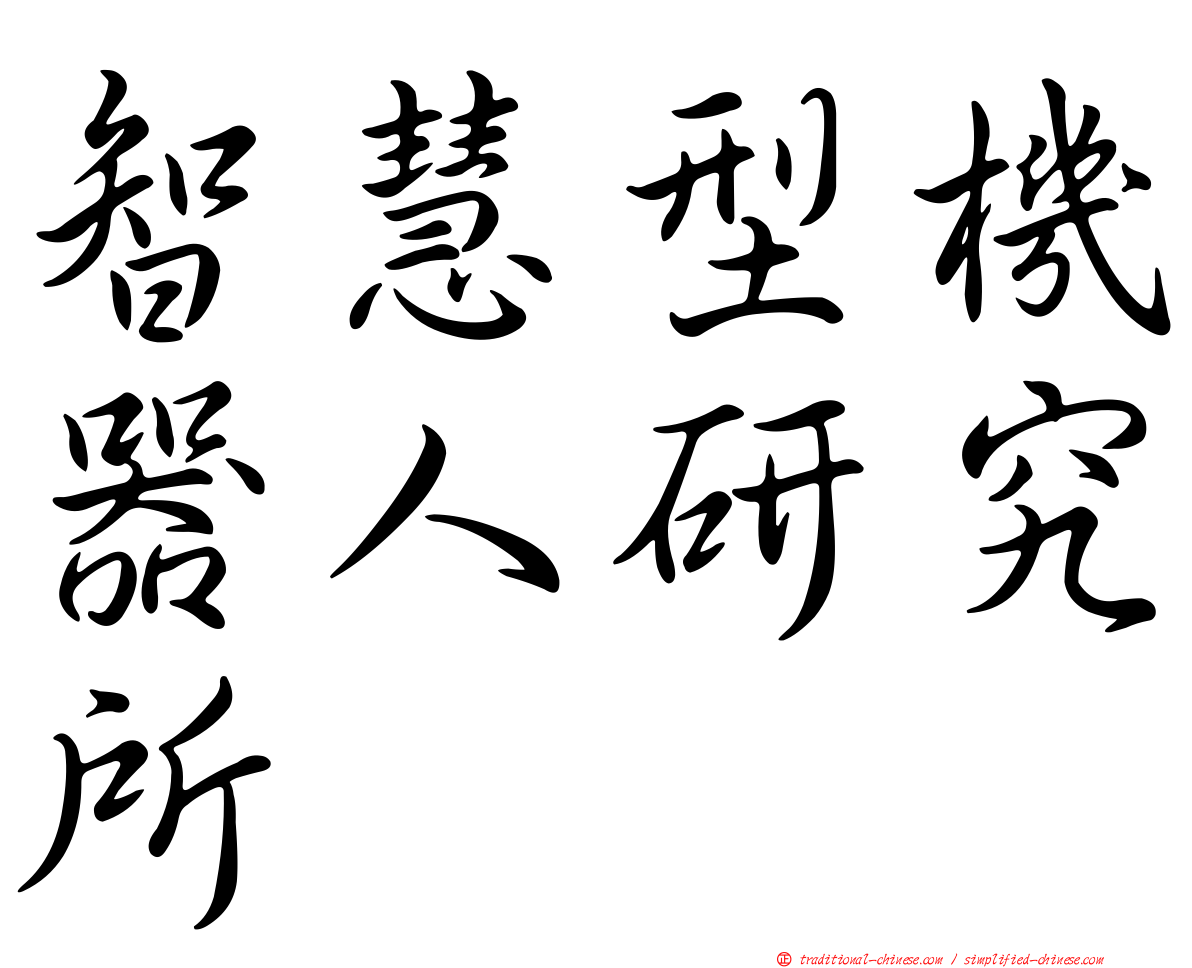 智慧型機
器人研究
所
正 traditional-chinese.com / simplified-chinese.com